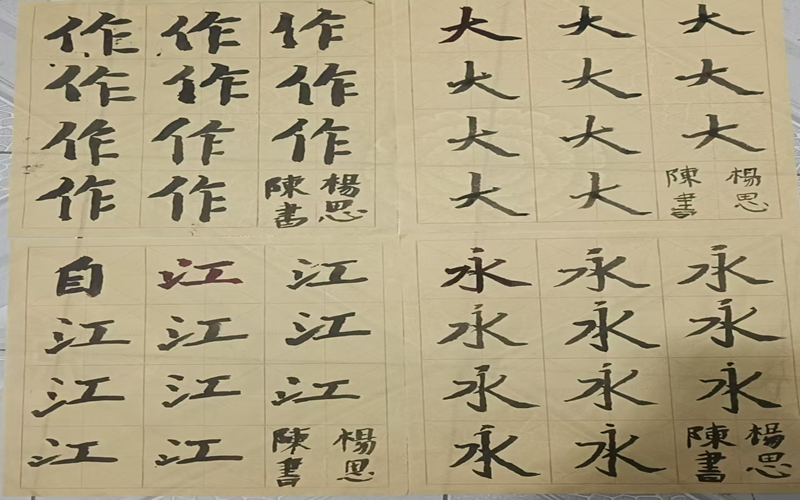 作 作 作
作 作 作
作 作 作
作 作 楊思陳書
大 大 大
大 大 大
大 大 大
大 大 楊思陳書
自 江 江
江 江 江
江 江 江
江 江 楊思陳書
永 永 永
永 永 永
永 永 永
永 永 楊思陳書